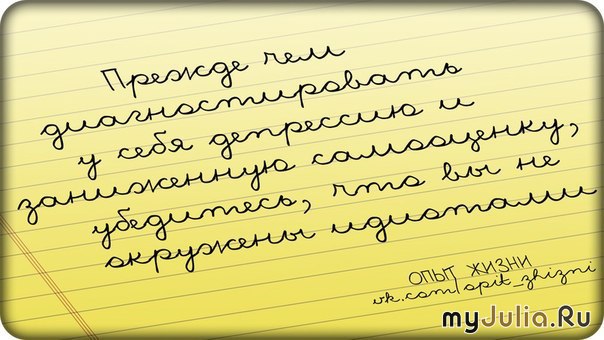 Прежде чем
диагностировать
у себя депрессию и
заниженную самооценку,
убедитесь, что вы не
окружены идиотами
ОПЫТ ЖИЗНИ
vk.com/opit_zhizni
myJulia.Ru